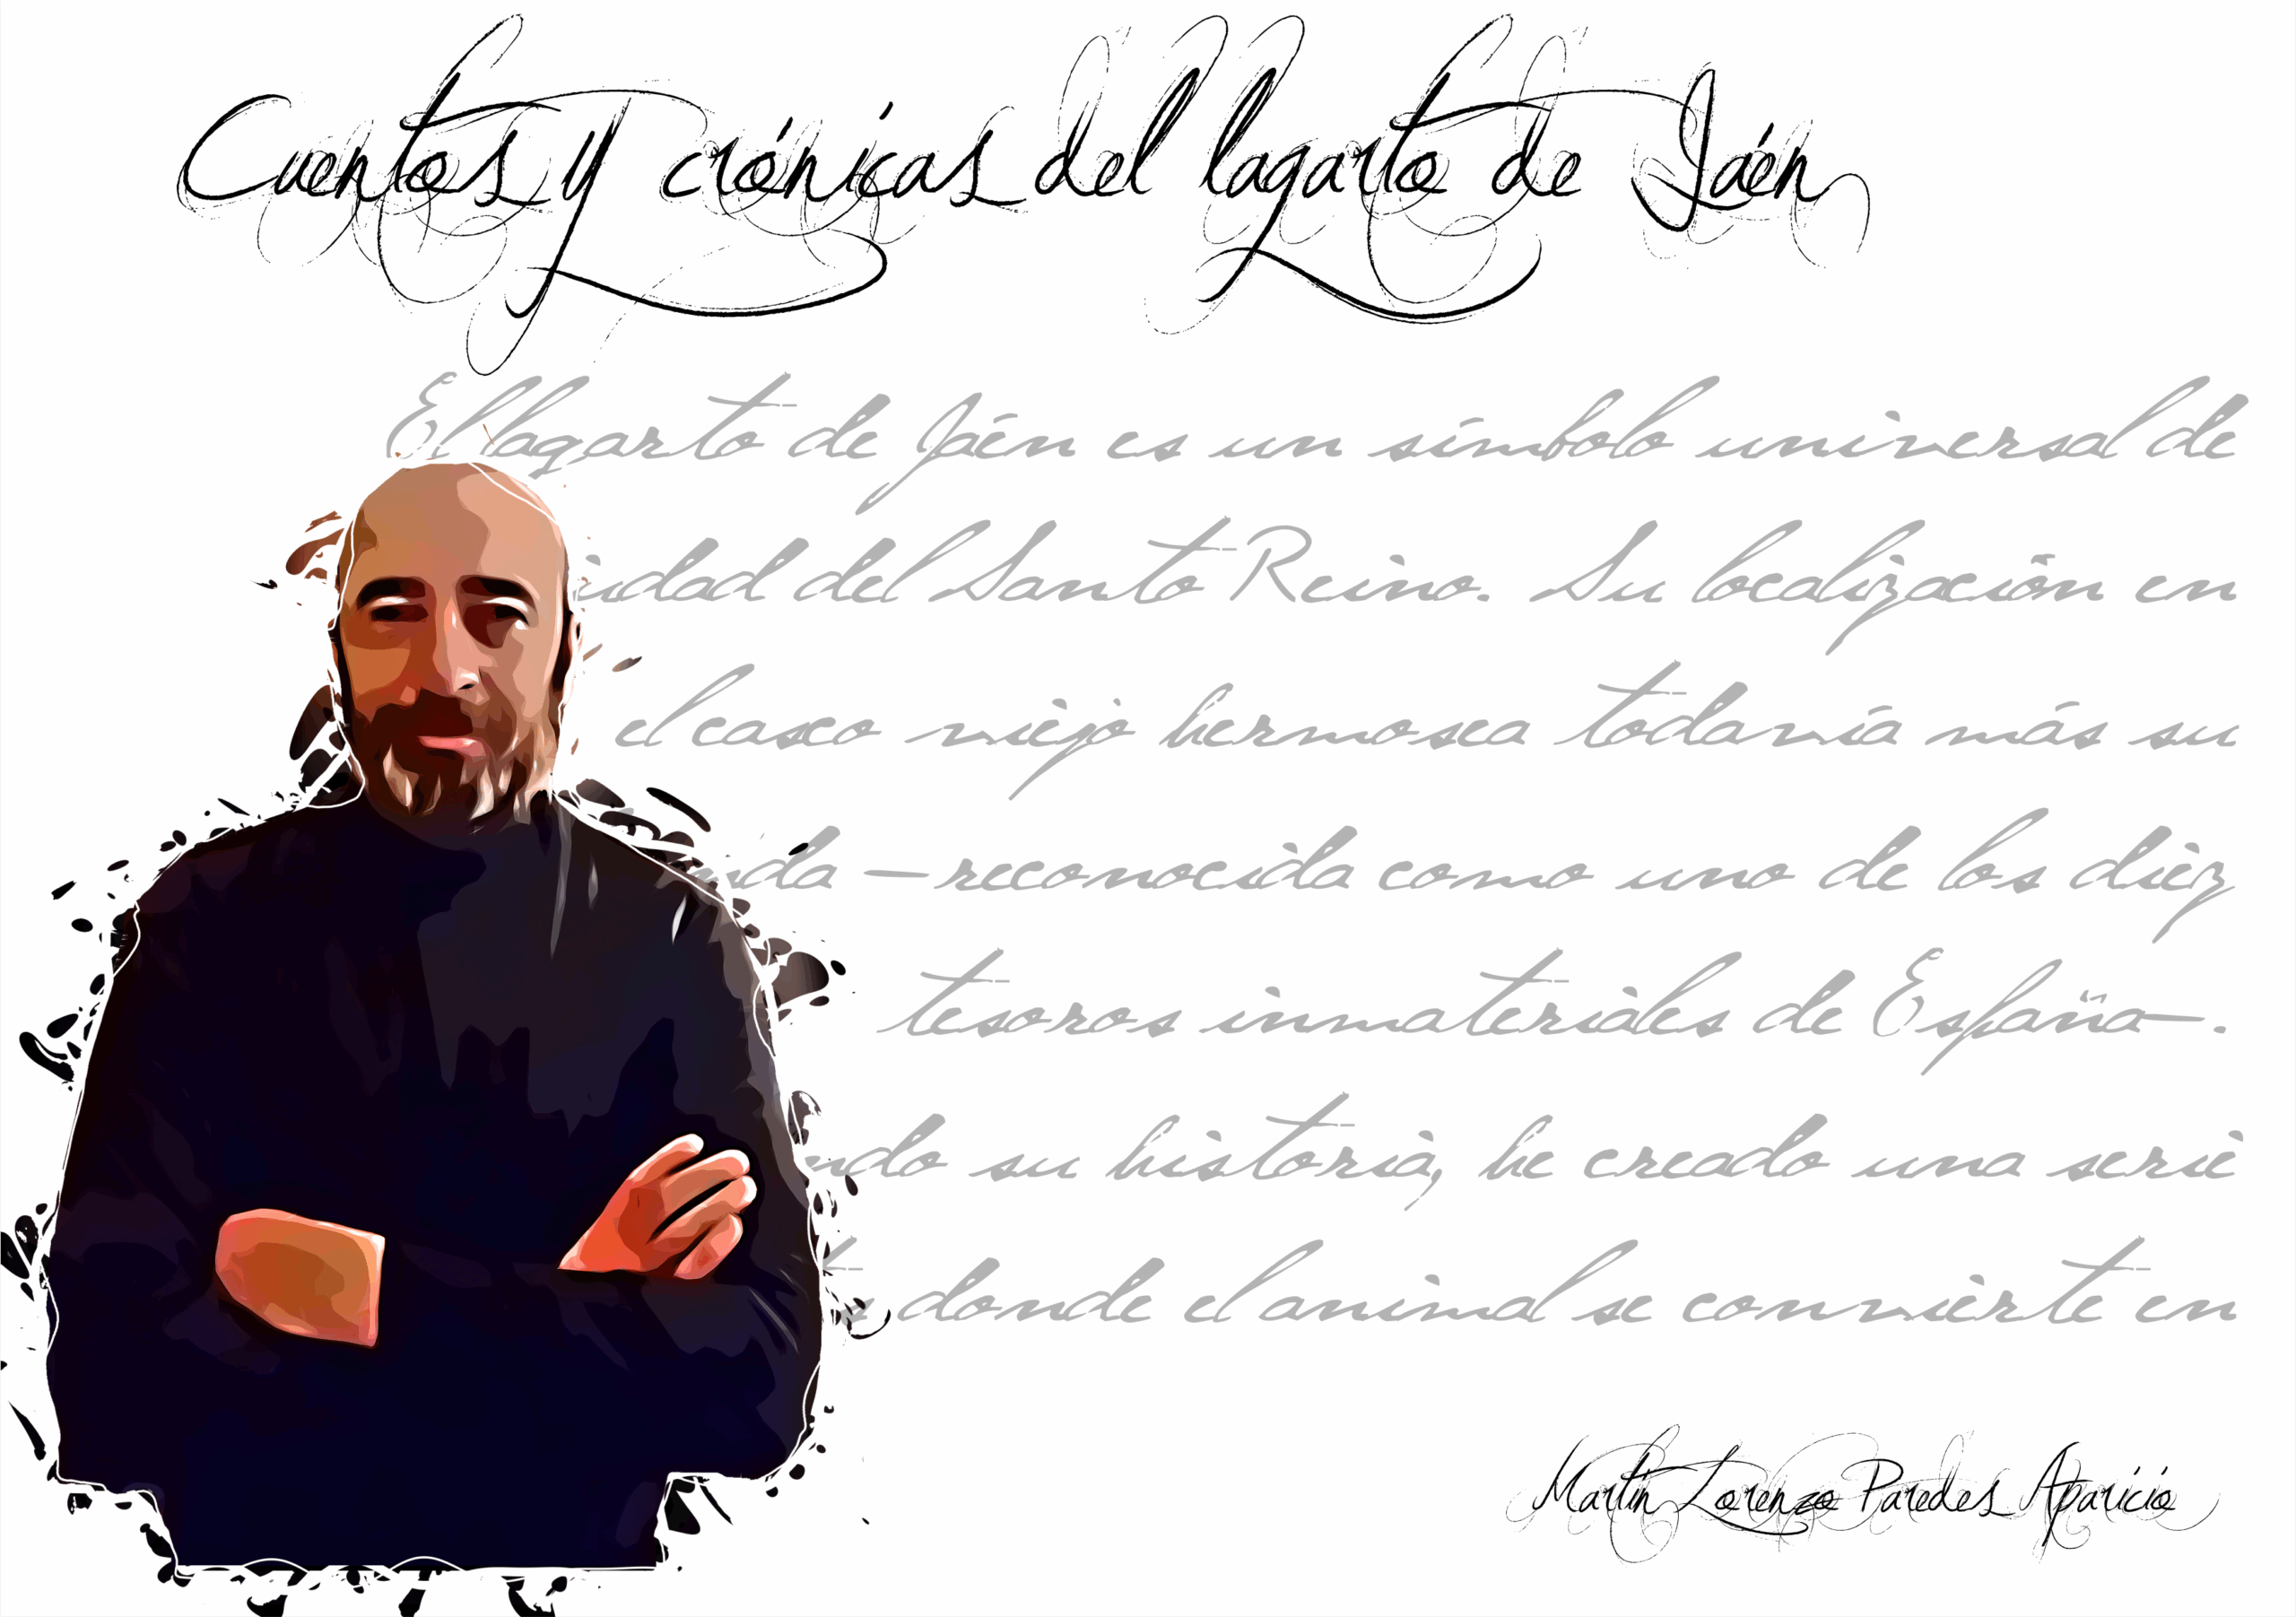 Cuentos y crónicas del lagarto de Jaén
El lagarto de Jaén es un símbolo universal de
udad del Santo Reino. Su localización en
el casco viejo hermosea todavía más su
nda —reconocida como uno de los diez
tesoros inmateriales de España—.
ndo su historia, he creado una serie
donde el animal se convierte en
Martín Lorenzo Paredes Aparicio